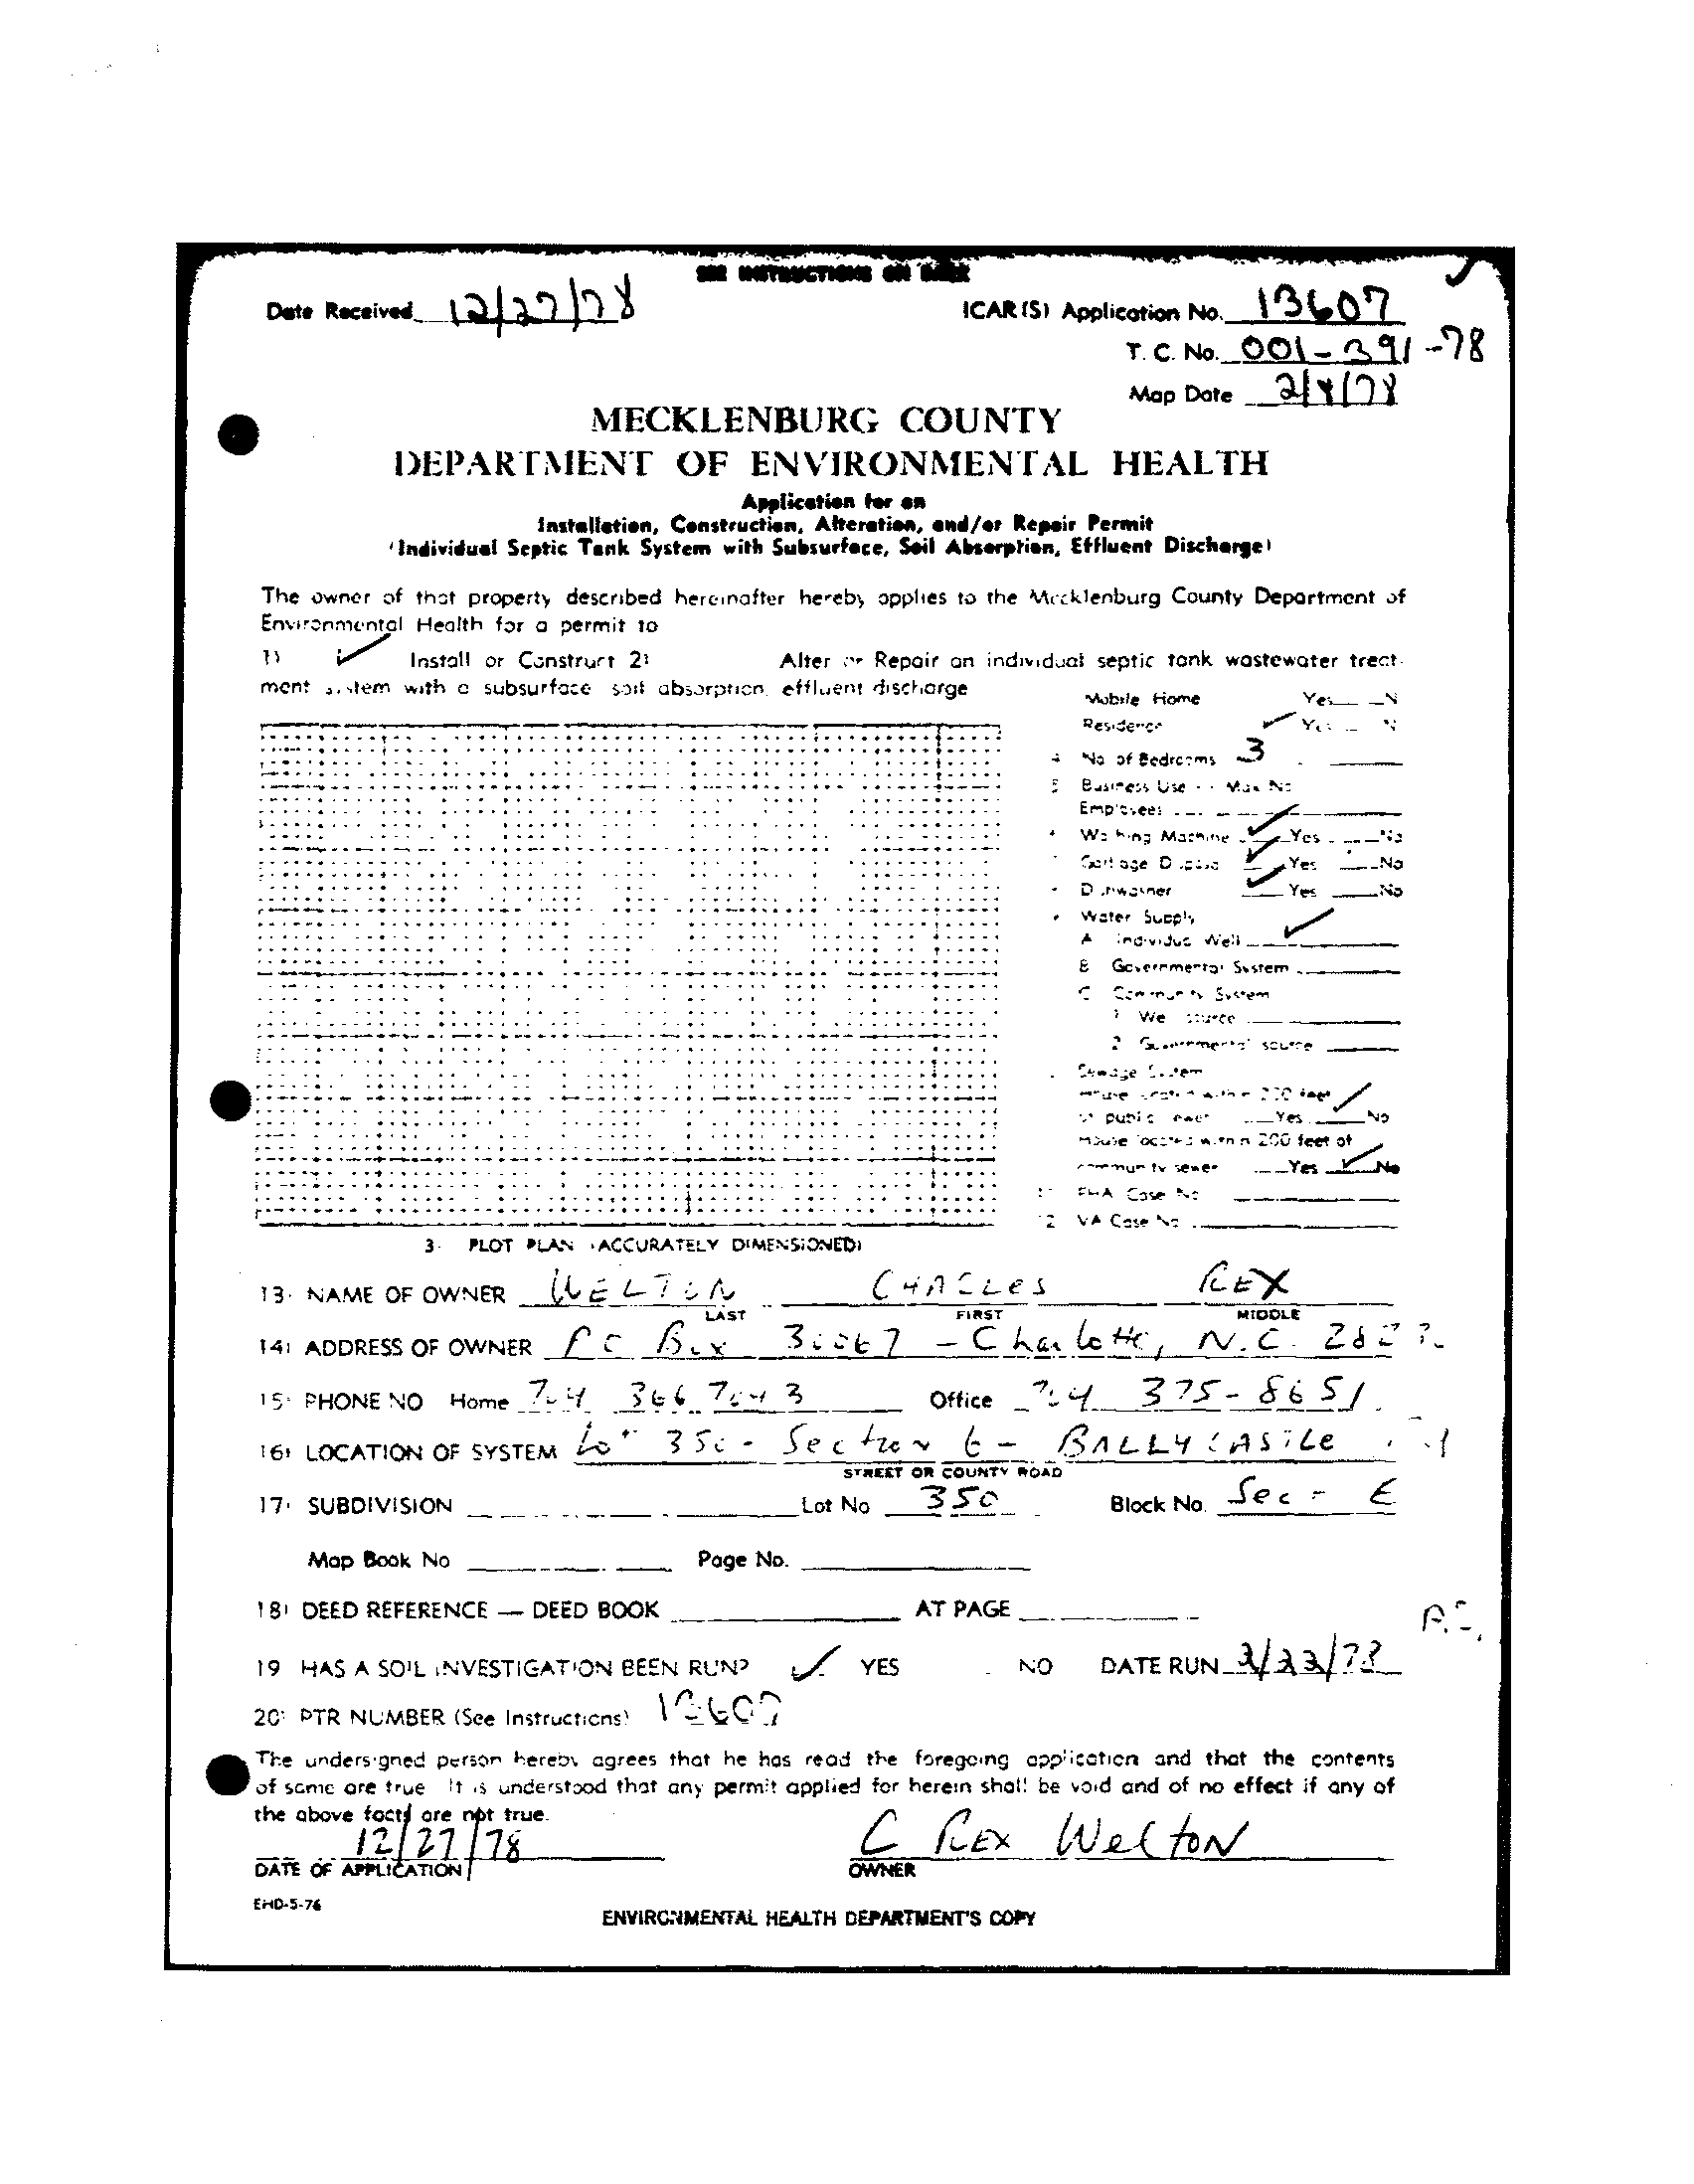 SEE INSTRUCTIONS ON BACK
Date Received 12/27/78 ICAR(S) Application No. 13607
T. C. No. 001-391-78
Map Date 2/8/78
MECKLENBURG COUNTY
DEPARTMENT OF ENVIRONMENTAL HEALTH
Application for an
Installation, Construction, Alteration, and/or Repair Permit
(Individual Septic Tank System with Subsurface, Soil Absorption, Effluent Discharge)
The owner of that property described hereinafter hereby applies to the Mecklenburg County Department of
Environmental Health for a permit to
1) ✓ Install or Construct 2) Alter or Repair an individual septic tank wastewater treat-
ment system with a subsurface soil absorption, effluent discharge
Mobile Home Yes N
Residence ✓ Yes N
4 No of Bedrooms 3
5 Business Use - - Max No
Employees
Washing Machine ✓ Yes No
Garbage Disposal ✓ Yes No
Dishwasher ✓ Yes No
Water Supply
A Individual Well ✓
B Governmental System
C Community System
1 Well source
2 Governmental source
Sewage System
House located within 200 feet
of public sewer Yes ✓ No
House located within 200 feet of
community sewer Yes ✓ No
11 FHA Case No
12 VA Case No
3. PLOT PLAN (ACCURATELY DIMENSIONED)
13) NAME OF OWNER WELTON CHARLES REX
LAST FIRST MIDDLE
14) ADDRESS OF OWNER PO Box 30067 - Charlotte, N.C.
15) PHONE NO Home 704 366 7043 Office 704 375-8651
16) LOCATION OF SYSTEM Lot 350 - Section - BALLYCASTLE
STREET OR COUNTY ROAD
17) SUBDIVISION Lot No 350 Block No. Sec -
Map Book No Page No.
18) DEED REFERENCE — DEED BOOK AT PAGE
19 HAS A SOIL INVESTIGATION BEEN RUN? ✓ YES NO DATE RUN 2/23/78
20) PTR NUMBER (See Instructions) 13607
The undersigned person hereby agrees that he has read the foregoing application and that the contents
of same are true It is understood that any permit applied for herein shall be void and of no effect if any of
the above facts are not true.
12/27/78 C REX Welton
DATE OF APPLICATION OWNER
EHD-5-76
ENVIRONMENTAL HEALTH DEPARTMENT'S COPY